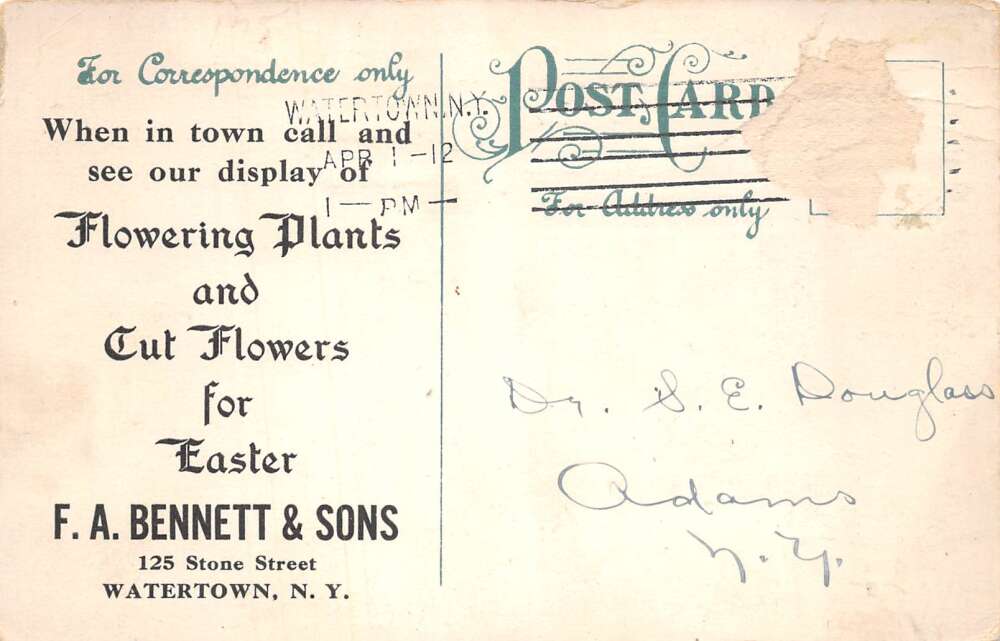 For Correspondence only
WATERTOWN, N.Y.
APR 1 -12
1 — PM —
When in town call and
see our display of
Flowering Plants
and
Cut Flowers
for
Easter
F. A. BENNETT & SONS
125 Stone Street
WATERTOWN, N. Y.
POST CARD
For Address only
Dr. S. E. Douglass
Adams
N. Y.